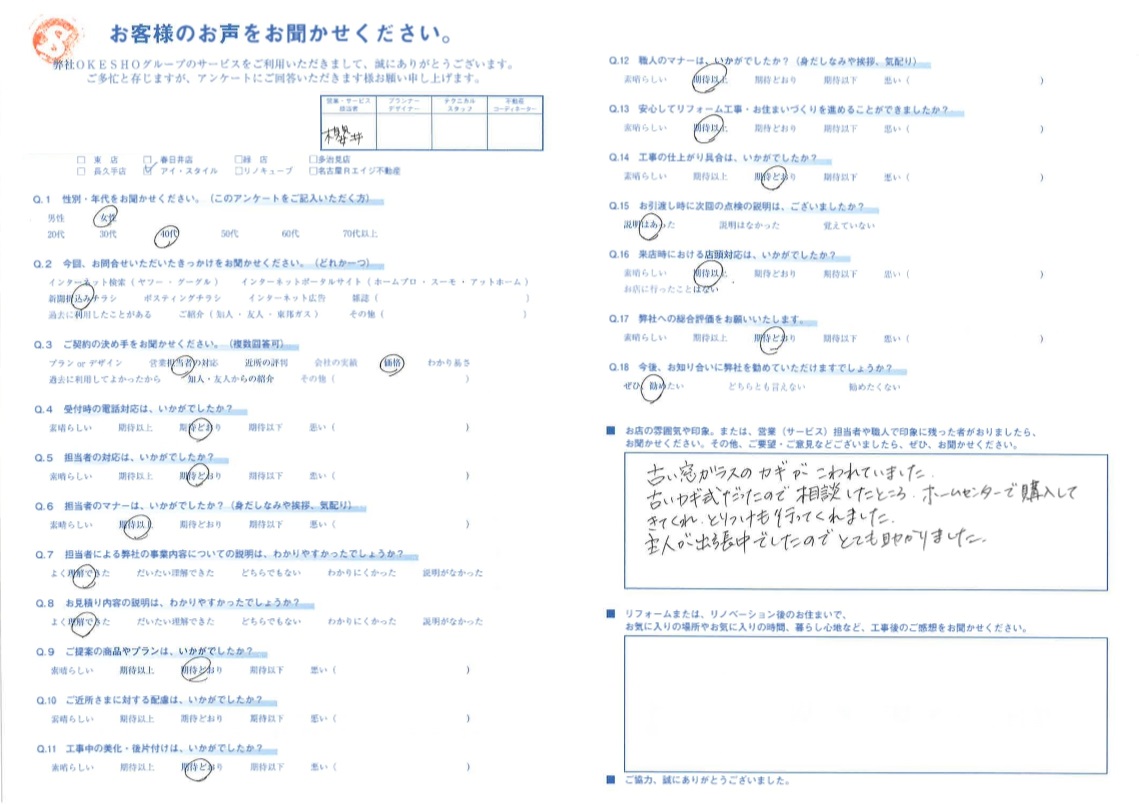 お客様のお声をお聞かせください。
弊社OKESHOグループのサービスをご利用いただきまして、誠にありがとうございます。
ご多忙と存じますが、アンケートにご回答いただきます様お願い申し上げます。
営業・サービス担当者 プランナーデザイナー テクニカルスタッフ 不動産コーディネーター
櫻井
□ 東 店 □ 春日井店 □緑 店 □多治見店
□ 長久手店 ☑ アイ・スタイル □リノキューブ □名古屋Rエイジ不動産
Q.1 性別・年代をお聞かせください。(このアンケートをご記入いただく方)
男性 女性
20代 30代 40代 50代 60代 70代以上
Q.2 今回、お問合せいただいたきっかけをお聞かせください。(どれか一つ)
インターネット検索(ヤフー・グーグル) インターネットポータルサイト(ホームプロ・スーモ・アットホーム)
新聞折込みチラシ ポスティングチラシ インターネット広告 雑誌( )
過去に利用したことがある ご紹介(知人・友人・東邦ガス) その他( )
Q.3 ご契約の決め手をお聞かせください。(複数回答可)
プラン or デザイン 営業担当者の対応 近所の評判 会社の実績 価格 わかり易さ
過去に利用してよかったから 知人・友人からの紹介 その他( )
Q.4 受付時の電話対応は、いかがでしたか?
素晴らしい 期待以上 期待どおり 期待以下 悪い( )
Q.5 担当者の対応は、いかがでしたか?
素晴らしい 期待以上 期待どおり 期待以下 悪い( )
Q.6 担当者のマナーは、いかがでしたか?(身だしなみや挨拶、気配り)
素晴らしい 期待以上 期待どおり 期待以下 悪い( )
Q.7 担当者による弊社の事業内容についての説明は、わかりやすかったでしょうか?
よく理解できた だいたい理解できた どちらでもない わかりにくかった 説明がなかった
Q.8 お見積り内容の説明は、わかりやすかったでしょうか?
よく理解できた だいたい理解できた どちらでもない わかりにくかった 説明がなかった
Q.9 ご提案の商品やプランは、いかがでしたか?
素晴らしい 期待以上 期待どおり 期待以下 悪い( )
Q.10 ご近所さまに対する配慮は、いかがでしたか?
素晴らしい 期待以上 期待どおり 期待以下 悪い( )
Q.11 工事中の美化・後片付けは、いかがでしたか?
素晴らしい 期待以上 期待どおり 期待以下 悪い( )
Q.12 職人のマナーは、いかがでしたか?(身だしなみや挨拶、気配り)
素晴らしい 期待以上 期待どおり 期待以下 悪い( )
Q.13 安心してリフォーム工事・お住まいづくりを進めることができましたか?
素晴らしい 期待以上 期待どおり 期待以下 悪い( )
Q.14 工事の仕上がり具合は、いかがでしたか?
素晴らしい 期待以上 期待どおり 期待以下 悪い( )
Q.15 お引渡し時に次回の点検の説明は、ございましたか?
説明はあった 説明はなかった 覚えていない
Q.16 来店時における店頭対応は、いかがでしたか?
素晴らしい 期待以上 期待どおり 期待以下 悪い( )
お店に行ったことはない
Q.17 弊社への総合評価をお願いいたします。
素晴らしい 期待以上 期待どおり 期待以下 悪い( )
Q.18 今後、お知り合いに弊社を勧めていただけますでしょうか?
ぜひ、勧めたい どちらとも言えない 勧めたくない
■ お店の雰囲気や印象。または、営業(サービス)担当者や職人で印象に残った者がおりましたら、
お聞かせください。その他、ご要望・ご意見などございましたら、ぜひ、お聞かせください。
古い窓ガラスのカギがこわれていました。
古いカギ式だったので相談したところ、ホームセンターで購入して
きてくれ、とりつけも行ってくれました。
主人が出張中でしたのでとても助かりました。
■ リフォームまたは、リノベーション後のお住まいで、
お気に入りの場所やお気に入りの時間、暮らし心地など、工事後のご感想をお聞かせください。
■ ご協力、誠にありがとうございました。